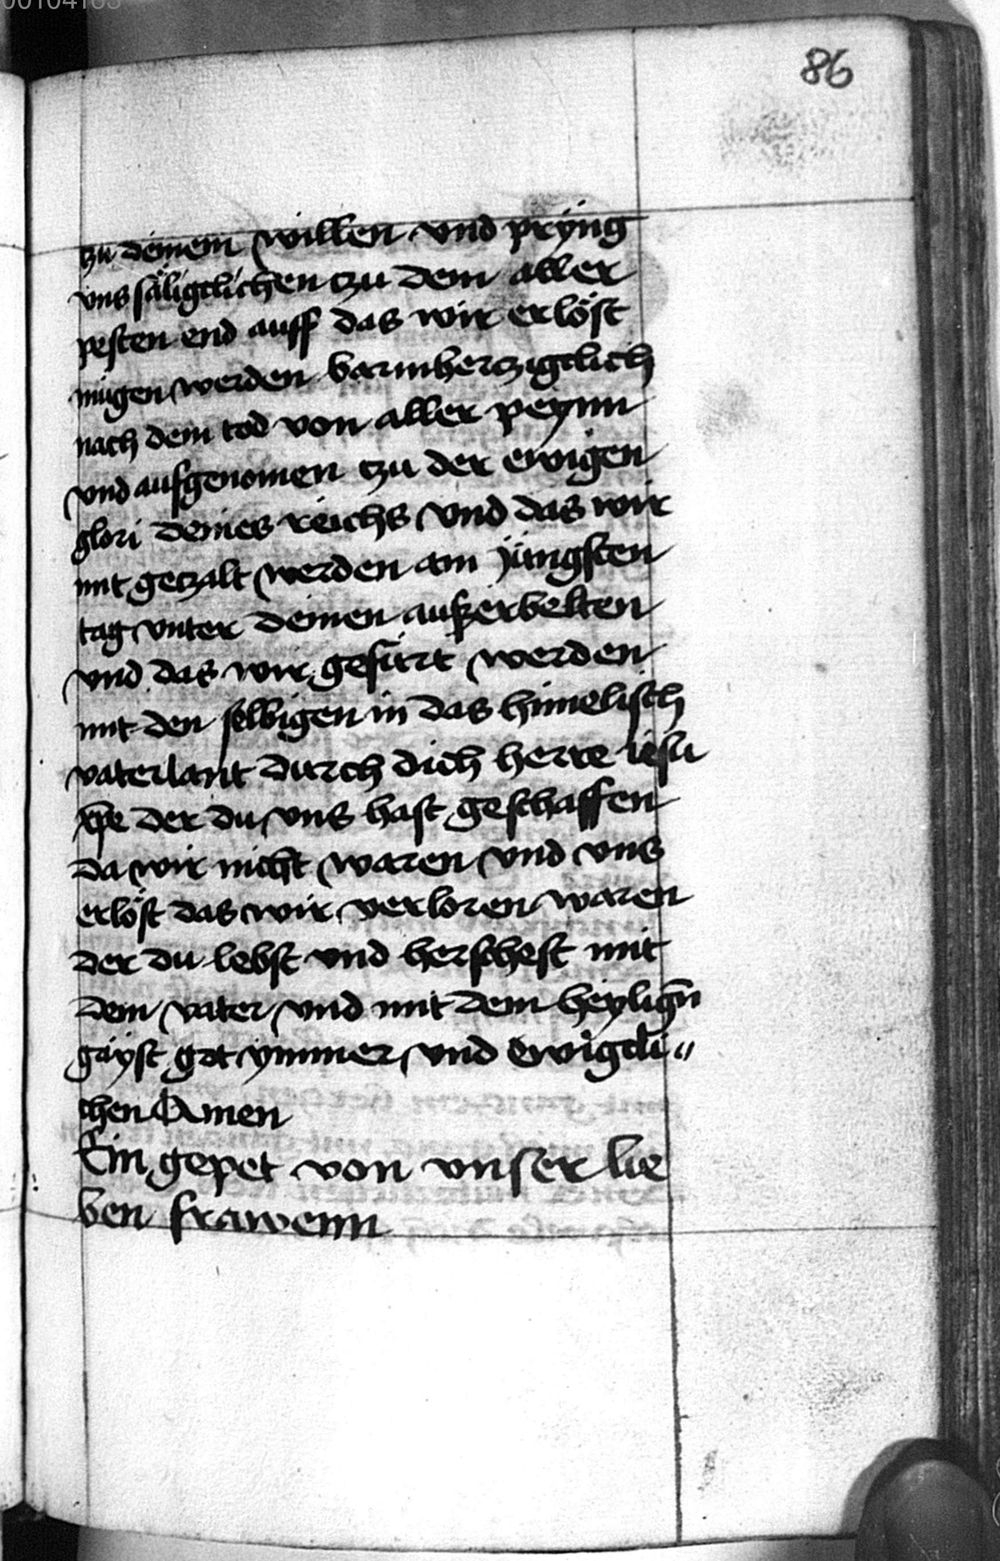 00104163
86
tzu deinem willen vnd prÿng
vns säligclichen tzu dem aller
pesten end auff das wir erlöst
mügen werden barmherczigclich
nach dem tod von aller peynn
vnd aufgenomen tzu der ewigen
glori deines reichs vnd das wir
mit geczalt werden am jüngsten
tag vnter deinen außerbelten
vnd das wir gefürt werden
mit den selbigen in das himelisch
vaterlant durch dich herre iesu
xpe der du vns hast geschaffen
da wir nicht waren vnd vns
erlöst das wir verloren waren
der du lebst vnd herschest mit
dem vater vnd mit dem heyligen̄
gäyst got ymmer vnd ewigcli〃
chen Amen
Ein gepet von vnser lie
ben frawenn